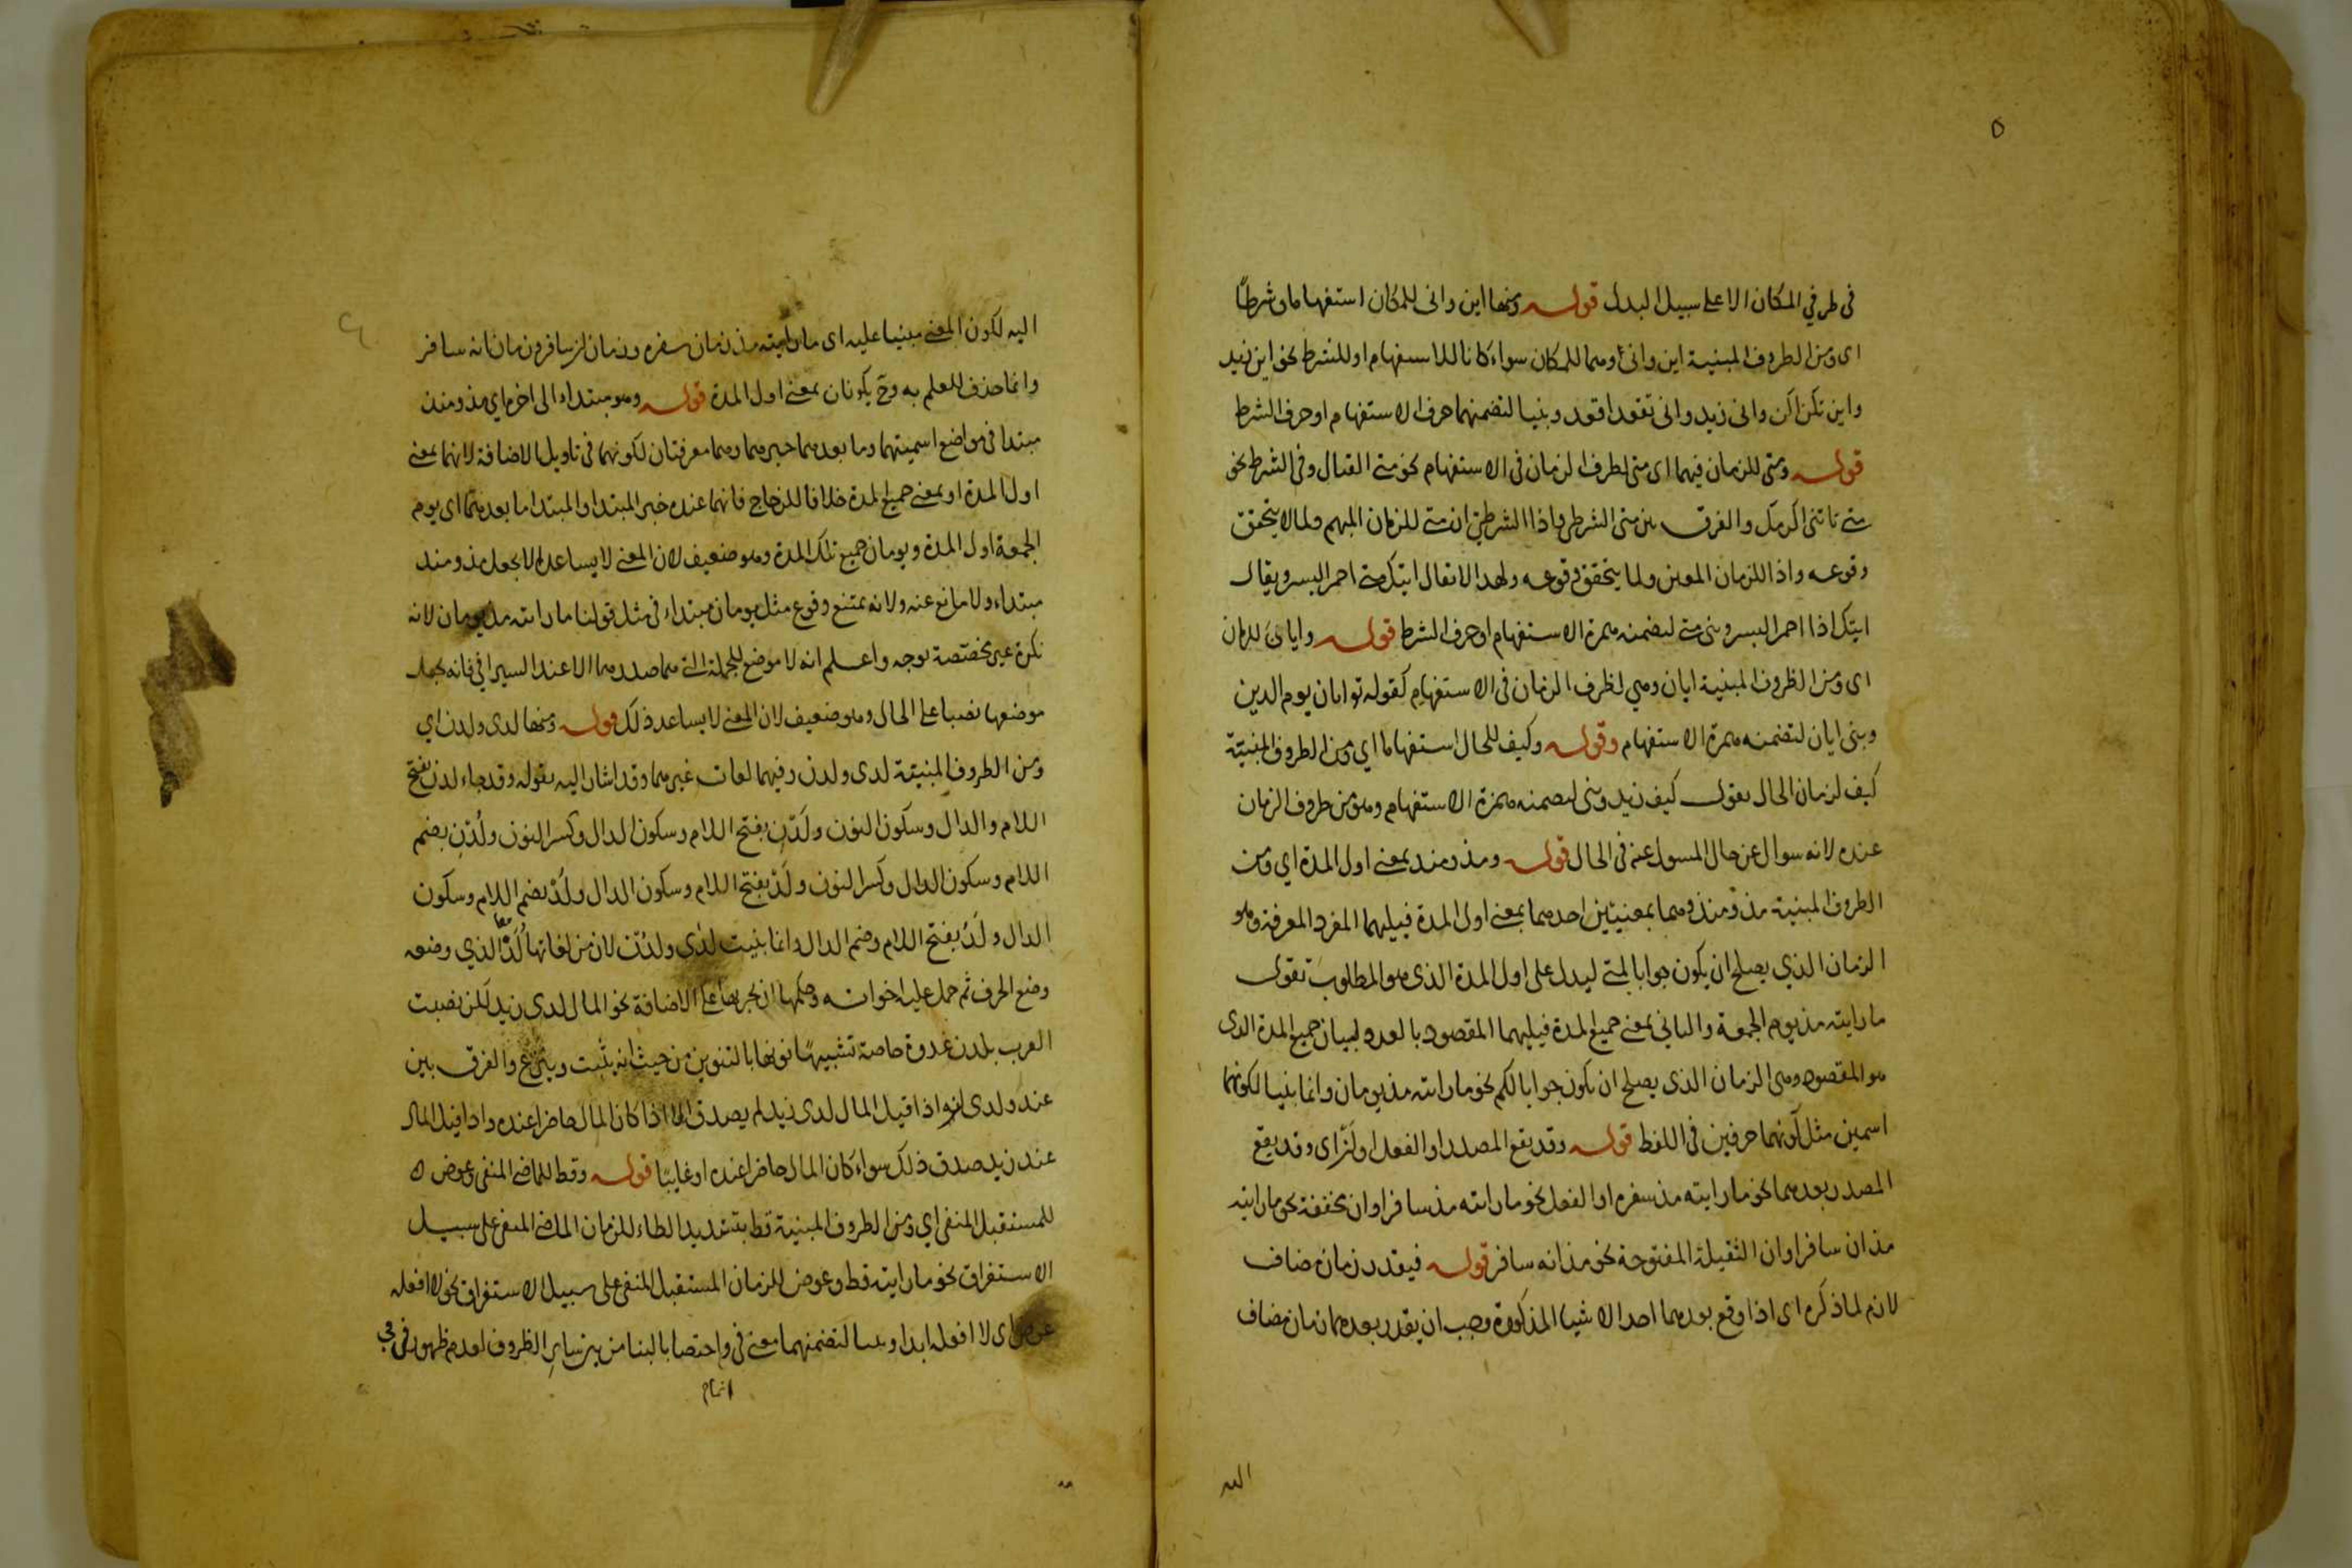 ٥
في ظرفي المكان الا على سبيل البدل قوله ومنها اين وانى للمكان استفهاما وشرطًا
اى ومن الظروف المبنية اين وانى وهما للمكان سواء كانا للاستفهام او للشرط نحو اين زيد
واين تكن اكن وانى زيد وانى تقعد اقعد وبنيا لتضمنهما حرف الاستفهام او حرف الشرط
قوله ومتى للزمان فيهما اى متى لظرف الزمان فى الاستفهام نحو متى القتال وفى الشرط نحو
متى تاتنى اكرمك والفرق بين متى الشرطى واذا الشرطى ان متى للزمان المبهم ولما لا يتحقق
وقوعه واذا للزمان المعين ولما يتحقق وقوعه ولهذا لا تقال اتيتك متى احمر البسر ويقال
اتيتك اذا احمر البسر وبنى متى لتضمنه همزة الاستفهام او حرف الشرط قوله وايان للزمان
اى ومن الظروف المبنية ايان وهي لظرف الزمان فى الاستفهام كقوله تع ايان يوم الدين
وبنى ايان لتضمنه همزة الاستفهام وقوله وكيف للحال استفهاما اي ومن الظروف المبنية
كيف لزمان الحال تقول كيف زيد وبنى لتضمنه همزة الاستفهام وهو من ظروف الزمان
عنده لانه سوال عن حال المسول عنه فى الحال قوله ومذ ومنذ بمعنى اول المدة اي ومن
الظروف المبنية مذ ومنذ وهما بمعنيين احدهما بمعنى اول المدة فيليهما المفرد المعرفة وهو
الزمان الذي يصلح ان يكون جوابا لمتى ليدل على اول المدة الذى هو المطلوب تقول
ما رايته مذ يوم الجمعة والثاني بمعنى جميع المدة فيليهما المقصود بالعدد لبيان جميع المدة الذى
هو المقصود وهى الزمان الذى يصلح ان يكون جوابا لكم نحو ما رايته مذ يومان وانما بنيا لكونهما
اسمين مثل كونهما حرفين فى اللفظ قوله وقد يقع المصدر او الفعل او ان اى وقد يقع
المصدر بعدهما نحو ما رايته مذ سفره او الفعل نحو ما رايته مذ سافر او ان مخففة نحو ما رايته
مذ ان سافر او ان الثقيلة المفتوحة نحو مذ انه سافر قوله فيقدر زمان مضاف
لانه لما ذكره اى اذا وقع بعدهما احد الاشيا المذكورة وجب ان يقدر بعدهما زمان مضاف
اليه
اليه لكون المعنى مبنيا عليه اى ما رايته مذ زمان سفره وزمان ان سافر وزمان انه سافر
وانما حذف للعلم به وح يكونان بمعنى اول المدة قوله وهو مبتداء الى اخره اي مذ ومنذ
مبتدا فى مواضع اسميتهما وما بعدهما خبرهما وهما معرفتان لكونهما فى تاويل الاضافة لانهما بمعنى
اول المدة او بمعنى جميع المدة خلافا للزجاج فانهما عنده خبر المبتدا والمبتدا ما بعدهما اى يوم
الجمعة اول المدة ويومان جميع تلك المدة وهو ضعيف لان المعنى لا يساعده الا بجعل مذ ومنذ
مبتداء ولا مانع عنه ولانه يمتنع وقوع مثل يومان مبتداء فى مثل قولنا ما رايته مذ يومان لانه
نكرة غير مختصة بوجه واعلم انه لا موضع للجملة التى هما صدرهما الا عند السيرافي فانه يجعل
موضعها نصبا على الحال وهو ضعيف لان المعنى لا يساعد ذلك قوله ومنها لدى ولدن اي
ومن الظروف المبنية لدى ولدن وفيهما لغات غيرهما وقد اشار اليه بقوله وقد جاء لدن بفتح
اللام والدال وسكون النون ولَدْنِ بفتح اللام وسكون الدال وكسر النون ولُدْنِ بضم
اللام وسكون الدال وكسر النون ولَدْ بفتح اللام وسكون الدال ولُدْ بضم اللام وسكون
الدال ولَدُ بفتح اللام وضم الدال وانما بنيت لدى ولدن لان من لغاتها لَدُ الذي وضعه
وضع الحرف ثم حمل عليه اخواته وحكمها ان يجر بها على الاضافة نحو المال لدى زيد لكن نصبت
العرب بلدن غدوة خاصة تشبيها لنونها بالتنوين من حيث انه يثبت وينزع والفرق بين
عند ولدى انه اذا قيل المال لدى زيد لم يصدق الا اذا كان المال حاضرا عنده واذا قيل المال
عند زيد صدق ذلك سواء كان المال حاضرا عنده او غايبًا قوله وقط للماضى المنفى وعوض
للمستقبل المنفى اي ومن الظروف المبنية قط بتشديد الطاء للزمان الماضى المنفى على سبيل
الاستغراق نحو ما رايته قط وعوض للزمان المستقبل المنفى على سبيل الاستغراق نحو لا افعله
عوض اى لا افعله ابدا وبنيا لتضمنهما معنى فى واختصا بالبنا من بين ساير الظروف لعدم ظهور فى